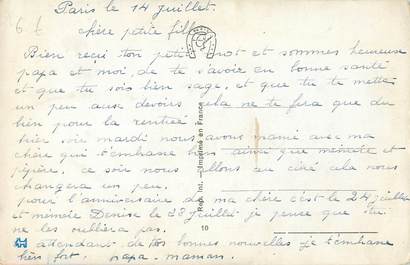 Paris le 14 juillet.
6 f
chère petite fille
Bien reçi ton petit mot et sommes heureuse
papa et moi, de te savoir en bonne santé
et que tu sois bien sage, et que tu te mette
un peu aux devoirs cela ne te fera que du
bien pour la rentrée
hier soir mardi nous avons mami avec ma
chère qui t'embrasse bien ainsi que mémère et
pépère. ce soir nous allons au ciné cela nous
changera un peu.
pour l'anniversaire de ma chère c'est le 24 juillet
et mémère Denise le 28 juillet je pense que tu
ne les oubliera pas.
attendant de tes bonnes nouvelles je t'embrasse
bien fort. papa. maman.
Rep. Int. — Imprimé en France
10